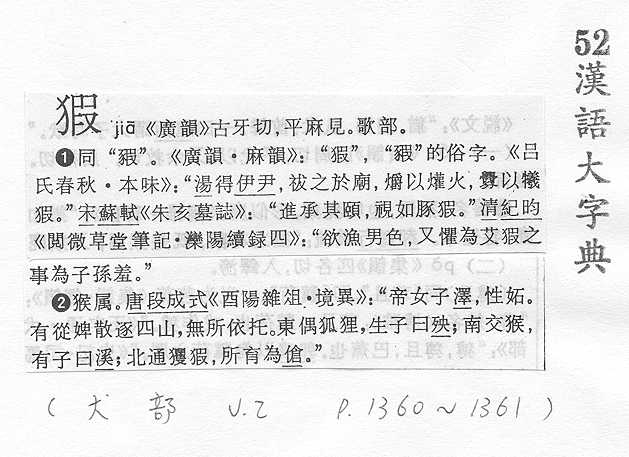 52漢語大字典
猳 jiā《廣韻》古牙切，平麻見。歌部。
❶同“豭”。《廣韻·麻韻》：“猳”，“豭”的俗字。《吕
氏春秋·本味》：“湯得伊尹，祓之於廟，爝以爟火，釁以犧
猳。”宋蘇軾《朱亥墓誌》：“進承其頤，視如豚猳。”清紀昀
《閲微草堂筆記·灤陽續録四》：“欲漁男色，又懼為艾猳之
事為子孫羞。”
❷猴属。唐段成式《酉陽雜俎·境異》：“帝女子澤，性妬。
有從婢散逐四山，無所依托。東偶狐狸，生子曰殃；南交猴，
有子曰溪；北通玃猳，所育為傖。”
（犬部 V.2 P.1360～1361）